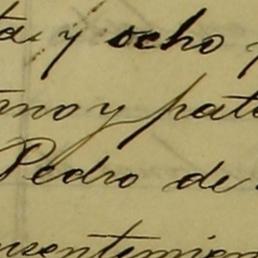 ta y ocho
ano y pat
Pedro de
nsentimien